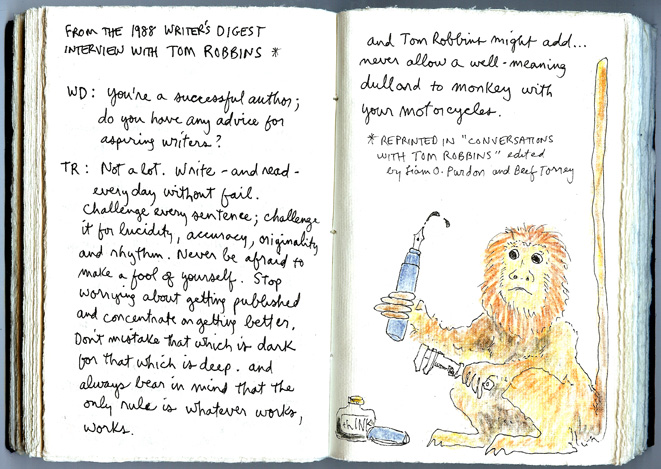 FROM THE 1988 WRITER'S DIGEST
INTERVIEW WITH TOM ROBBINS *
WD: You're a successful author;
do you have any advice for
aspiring writers?
TR: Not a lot. Write - and read -
every day without fail.
Challenge every sentence; challenge
it for lucidity, accuracy, originality
and rhythm. Never be afraid to
make a fool of yourself. Stop
worrying about getting published
and concentrate on getting better.
Don't mistake that which is dark
for that which is deep. and
always bear in mind that the
only rule is whatever works,
works.
and Tom Robbins might add...
never allow a well-meaning
dullard to monkey with
your motorcycles.
* REPRINTED IN "CONVERSATIONS
WITH TOM ROBBINS" edited
by Liam O. Purdon and Beef Torrey
INK